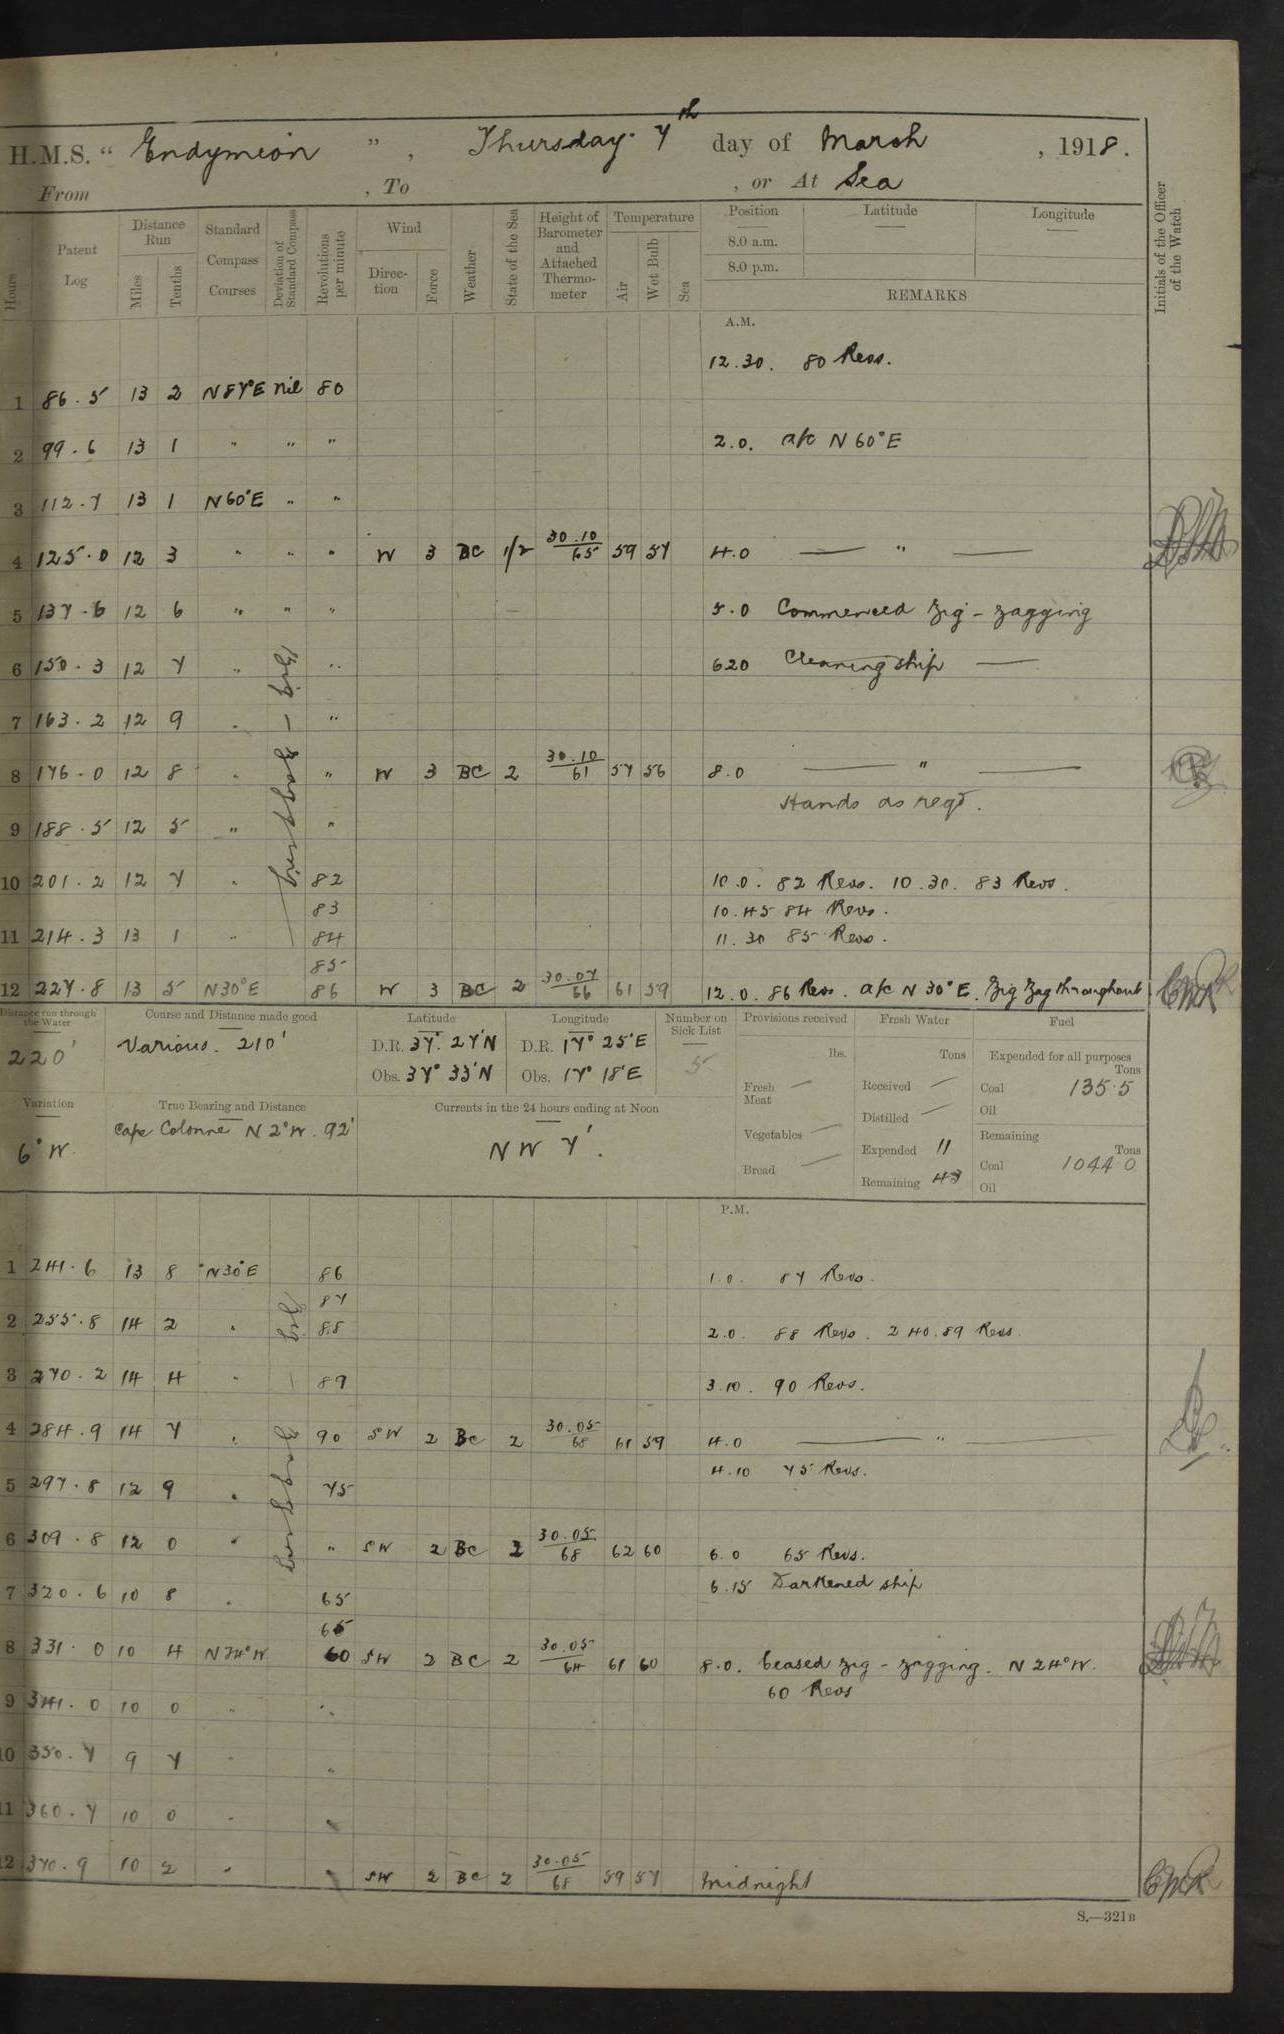 H.M.S. "Endymion", Thursday 7th day of March, 1918.
From , To , or At Sea
Hours
Patent Log
Distance Run
Miles
Tenths
Standard Compass Courses
Deviation of Standard Compass
Revolutions per minute
Wind
Direction
Force
Weather
State of the Sea
Height of Barometer and Attached Thermometer
Temperature
Air
Wet Bulb
Sea
Position Latitude Longitude
8.0 a.m.
8.0 p.m.
REMARKS
Initials of the Officer of the Watch
A.M.
12.30. 80 Revs.
1 86.5 13 2 N87°E nil 80
2 99.6 13 1 " " " 2.0. a/c N60°E
3 112.7 13 1 N60°E " "
4 125.0 12 3 " " " W 3 BC 1/2 30.10/65 59 57 4.0 — " —
5 137.6 12 6 " " " 5.0 Commenced Zig-zagging
6 150.3 12 7 " " 620 Cleaning ship —
7 163.2 12 9 " "
8 176.0 12 8 " " W 3 BC 2 30.10/61 57 56 8.0 — " —
Hands as reqd.
9 188.5 12 5 " "
10 201.2 12 7 " 82 10.0. 82 Revs. 10.30. 83 Revs.
83 10.45 84 Revs.
11 214.3 13 1 " 84 11.30 85 Revs.
85
12 227.8 13 5 N30°E 86 W 3 BC 2 30.07/66 61 59 12.0. 86 Revs. a/c N30°E. Zig Zag throughout
Zig - zagging
Distance run through the Water
220'
Course and Distance made good
Various. 210'
Latitude
D.R. 37° 27'N
Obs. 37° 33'N
Longitude
D.R. 17° 25'E
Obs. 17° 18'E
Number on Sick List
5
Provisions received
lbs.
Fresh Meat —
Vegetables —
Bread —
Fresh Water
Tons
Received —
Distilled —
Expended 11
Remaining 43
Fuel
Expended for all purposes
Tons
Coal 135.5
Oil
Remaining
Tons
Coal 1044.0
Oil
Variation
6°W.
True Bearing and Distance
Cape Colonne N2°W. 92'
Currents in the 24 hours ending at Noon
NW 7'.
P.M.
1 241.6 13 8 N30°E 86 1.0. 87 Revs.
87
2 255.8 14 2 " 88 2.0. 88 Revs. 240.89 Revs.
3 270.2 14 4 " 89 3.10. 90 Revs.
4 284.9 14 7 " 90 SW 2 BC 2 30.05/68 61 59 4.0 — " —
4.10 75 Revs.
5 297.8 12 9 " 75
6 309.8 12 0 " " SW 2 BC 2 30.05/68 62 60 6.0 65 Revs.
6.15 Darkened ship
7 320.6 10 8 " 65
65
8 331.0 10 4 N24°W 60 SW 2 BC 2 30.05/64 61 60 8.0. Ceased zig-zagging. N24°W.
60 Revs
9 341.0 10 0 " "
10 350.7 9 7 " "
11 360.7 10 0 " "
12 370.9 10 2 " " SW 2 BC 2 30.05/68 59 57 Midnight
Zig - zagging
S.—321B